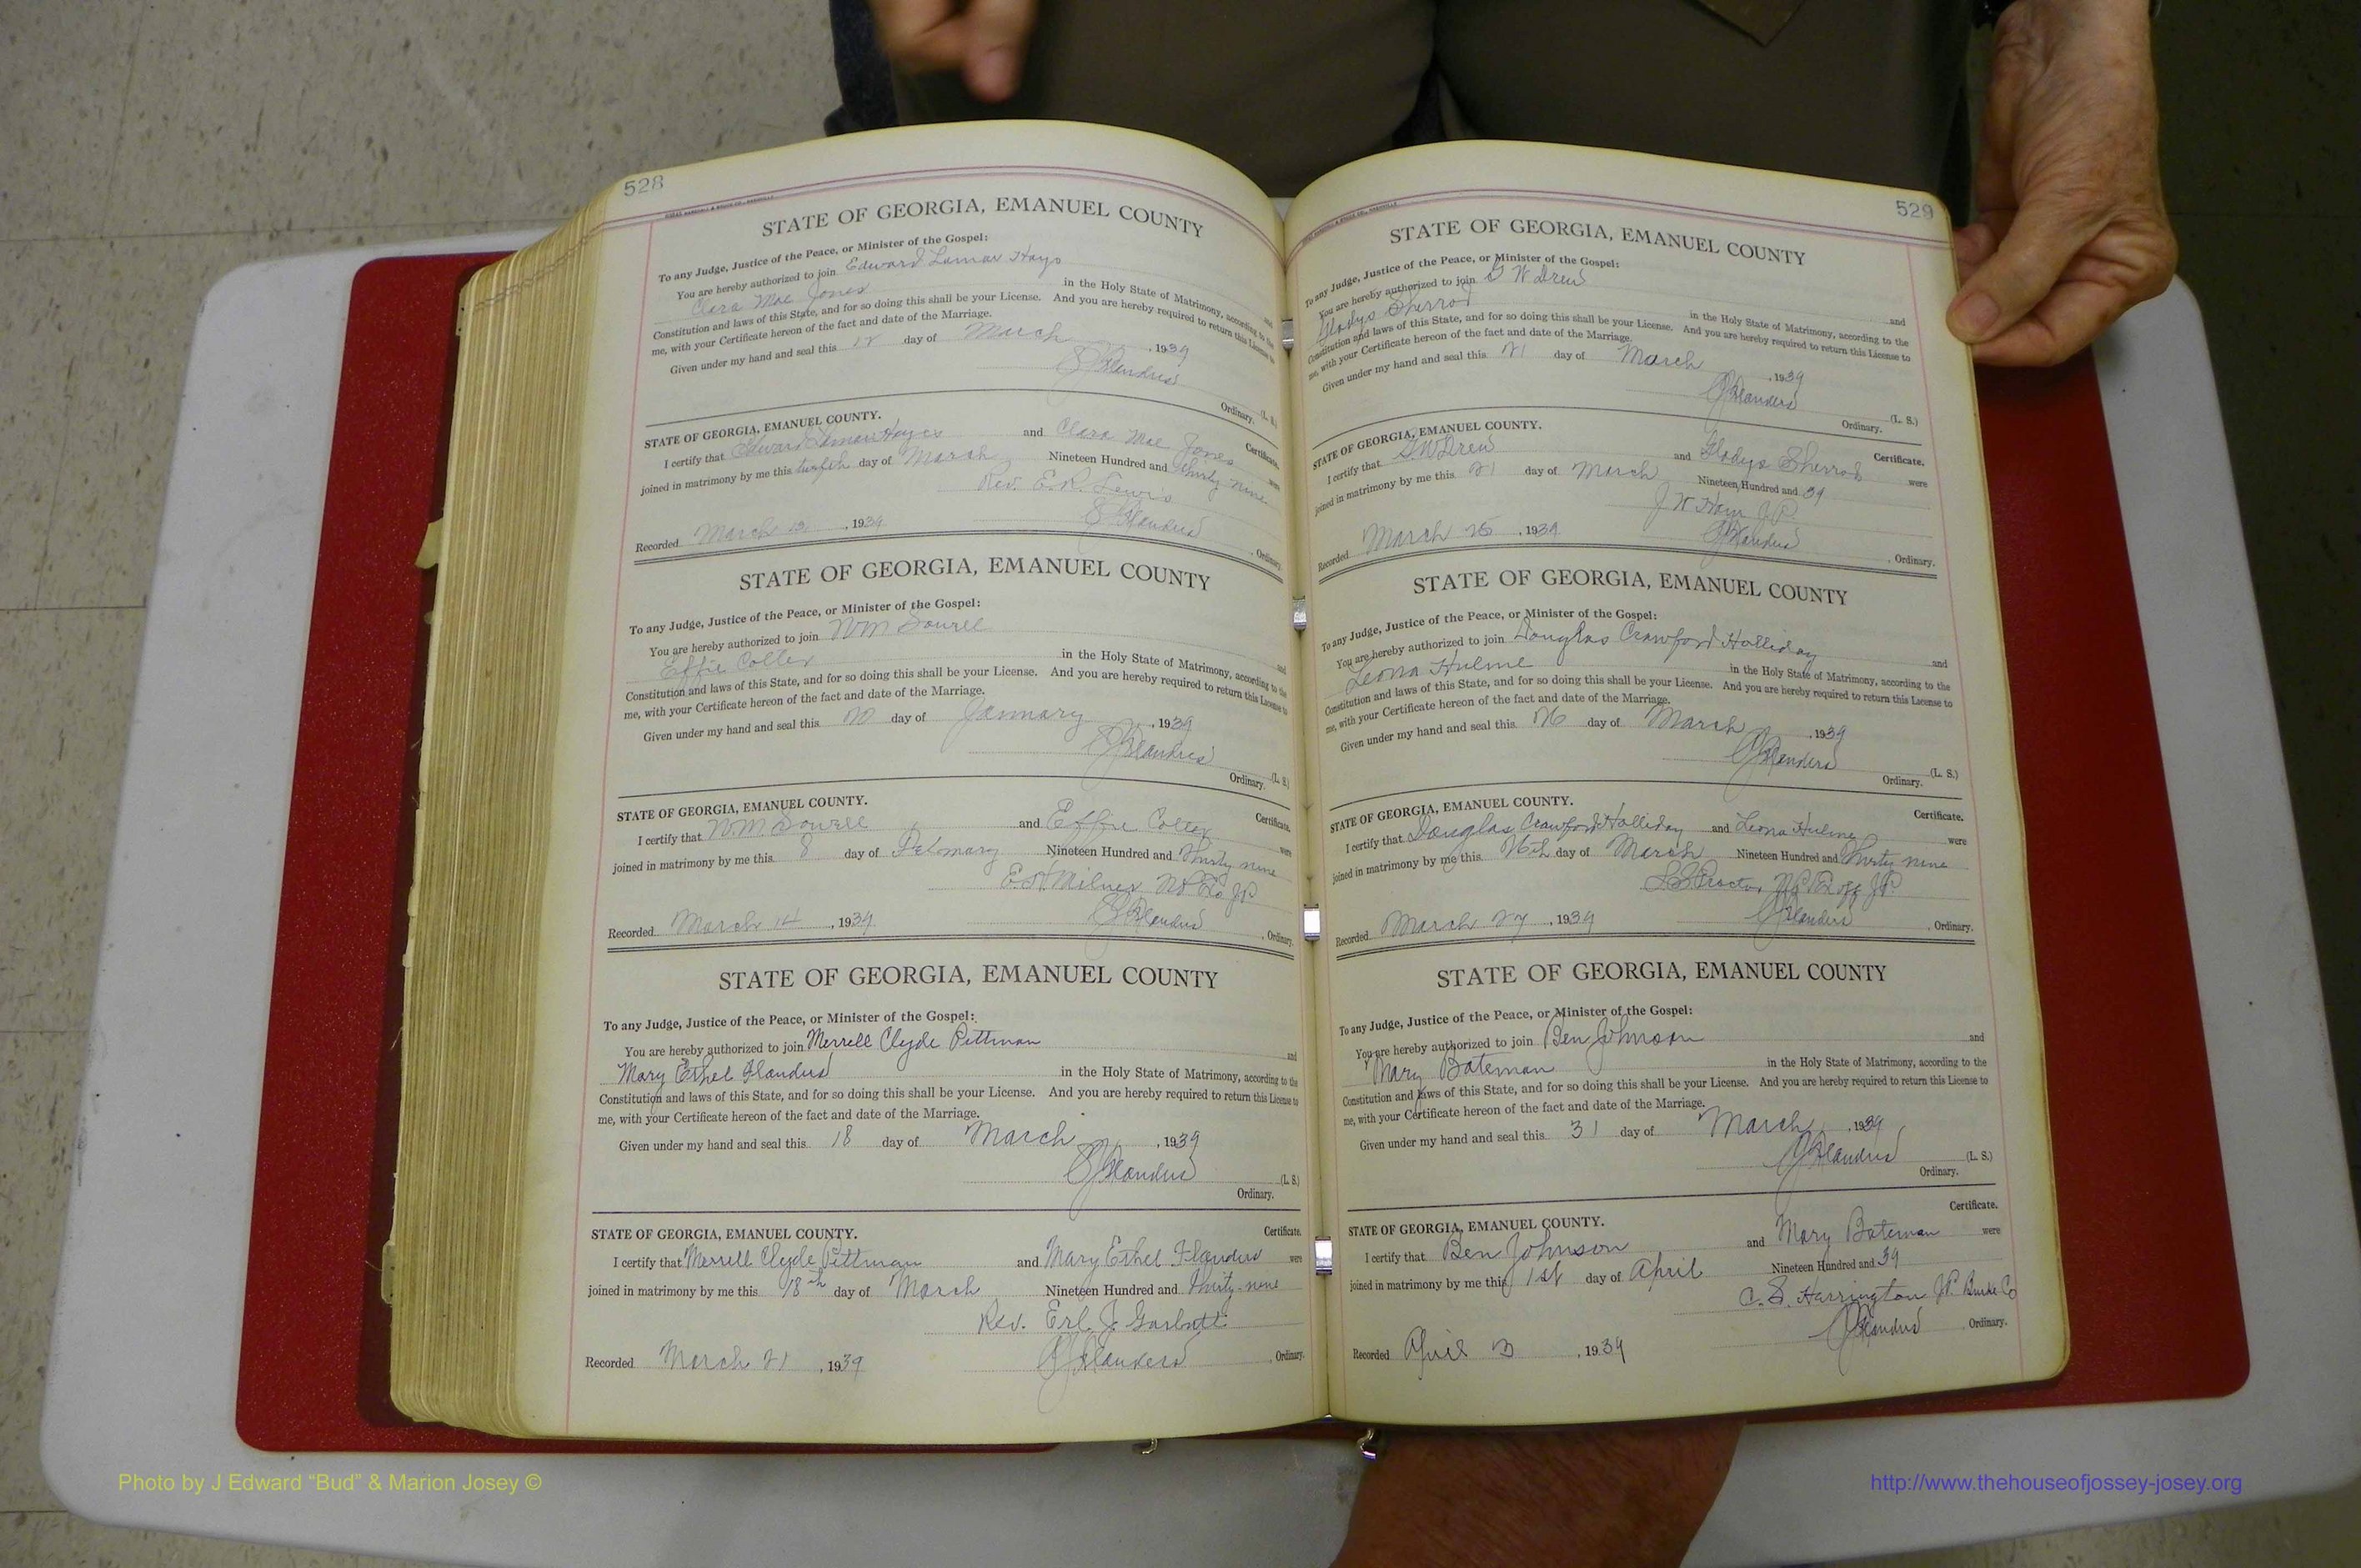 528
STATE OF GEORGIA, EMANUEL COUNTY
To any Judge, Justice of the Peace, or Minister of the Gospel:
You are hereby authorized to join Edward Lamar Hays and
Clara Mae Jones in the Holy State of Matrimony, according to the
Constitution and laws of this State, and for so doing this shall be your License. And you are hereby required to return this License to
me, with your Certificate hereon of the fact and date of the Marriage.
Given under my hand and seal this 12 day of March, 1939
(L. S.)
Ordinary.
STATE OF GEORGIA, EMANUEL COUNTY. Certificate.
I certify that Edward Lamar Hayes and Clara Mae Jones were
joined in matrimony by me this day of March Nineteen Hundred and thirty nine
Rev. E. R. Lewis
Recorded March 1939 Ordinary.
STATE OF GEORGIA, EMANUEL COUNTY
To any Judge, Justice of the Peace, or Minister of the Gospel:
You are hereby authorized to join Wm Sowell and
Effie Coller in the Holy State of Matrimony, according to the
Constitution and laws of this State, and for so doing this shall be your License. And you are hereby required to return this License to
me, with your Certificate hereon of the fact and date of the Marriage.
Given under my hand and seal this 20 day of January, 1939
(L. S.)
Ordinary.
STATE OF GEORGIA, EMANUEL COUNTY. Certificate.
I certify that W.M Sowell and Effie were
joined in matrimony by me this 8 day of February Nineteen Hundred and thirty nine
E.H. Milner
Recorded March 14, 1939 Ordinary.
STATE OF GEORGIA, EMANUEL COUNTY
To any Judge, Justice of the Peace, or Minister of the Gospel:
You are hereby authorized to join Merrell Clyde Pittman and
Mary Ethel Flanders in the Holy State of Matrimony, according to the
Constitution and laws of this State, and for so doing this shall be your License. And you are hereby required to return this License to
me, with your Certificate hereon of the fact and date of the Marriage.
Given under my hand and seal this 18 day of March, 1939
(L. S.)
Ordinary.
STATE OF GEORGIA, EMANUEL COUNTY. Certificate.
I certify that Merrell Clyde Pittman and Mary Ethel Flanders were
joined in matrimony by me this 18th day of March Nineteen Hundred and thirty-nine
Rev. Erl. J. Garbutt
Recorded March 21, 1939 Ordinary.
529
STATE OF GEORGIA, EMANUEL COUNTY
To any Judge, Justice of the Peace, or Minister of the Gospel:
You are hereby authorized to join G W Drew and
Gladys Sherrod in the Holy State of Matrimony, according to the
Constitution and laws of this State, and for so doing this shall be your License. And you are hereby required to return this License to
me, with your Certificate hereon of the fact and date of the Marriage.
Given under my hand and seal this 21 day of March, 1939
(L. S.)
Ordinary.
STATE OF GEORGIA, EMANUEL COUNTY. Certificate.
I certify that G.W Drew and Gladys Sherrod were
joined in matrimony by me this 21 day of March Nineteen Hundred and 39
J W JP
Recorded March 25, 1939 Ordinary.
STATE OF GEORGIA, EMANUEL COUNTY
To any Judge, Justice of the Peace, or Minister of the Gospel:
You are hereby authorized to join Douglas Crawford Holliday and
Leona Hulme in the Holy State of Matrimony, according to the
Constitution and laws of this State, and for so doing this shall be your License. And you are hereby required to return this License to
me, with your Certificate hereon of the fact and date of the Marriage.
Given under my hand and seal this 26 day of March, 1939
(L. S.)
Ordinary.
STATE OF GEORGIA, EMANUEL COUNTY. Certificate.
I certify that Douglas Crawford Holliday and Leona Hulme were
joined in matrimony by me this 26th day of March Nineteen Hundred and thirty nine
Proctor
Recorded March 27, 1939 Ordinary.
STATE OF GEORGIA, EMANUEL COUNTY
To any Judge, Justice of the Peace, or Minister of the Gospel:
You are hereby authorized to join Ben Johnson and
Mary Bateman in the Holy State of Matrimony, according to the
Constitution and laws of this State, and for so doing this shall be your License. And you are hereby required to return this License to
me, with your Certificate hereon of the fact and date of the Marriage.
Given under my hand and seal this 31 day of March, 1939
(L. S.)
Ordinary.
STATE OF GEORGIA, EMANUEL COUNTY. Certificate.
I certify that Ben Johnson and Mary Bateman were
joined in matrimony by me this 1st day of April Nineteen Hundred and 39
C. S. Harrington J.P. Burke Co
Ordinary.
Recorded April 3, 1939
Photo by J Edward “Bud” & Marion Josey ©
http://www.thehouseofjossey-josey.org